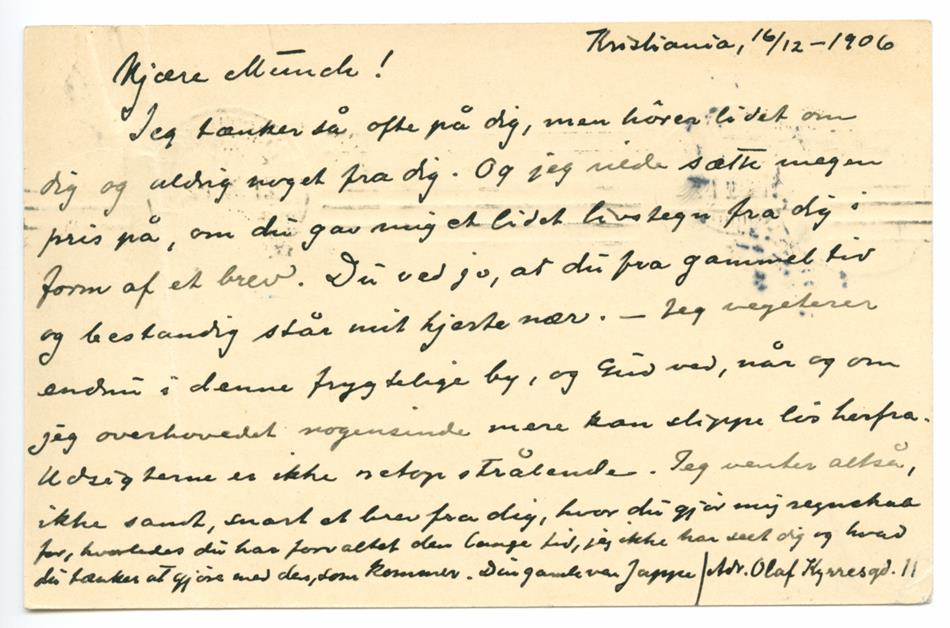 Kristiania, 16/12 – 1906
Kjære Munch!
Jeg tænker så ofte på dig, men hörer lidet om
dig og aldrig noget fra dig. Og jeg vilde sætte megen
pris på, om du gav mig et lidet livstegn fra dig i
form af et brev. Du ved jo, at du fra gammel tid
og bestandig står mit hjerte nær. – Jeg vegeterer
endnu i denne frygtelige by, og Gud ved, når og om
jeg overhovedet nogensinde mere kan slippe lös herfra.
Udsigterne er ikke netop strålende. Jeg venter altså,
ikke sandt, snart et brev fra dig, hvor du gjör mig regnskab
for, hvorledes du har forvaltet den lange tid, jeg ikke har seet dig og hvad
du tænker at gjöre med den, som kommer. Din gamle ven Jappe / Adr. Olaf Kyrresgd. 11